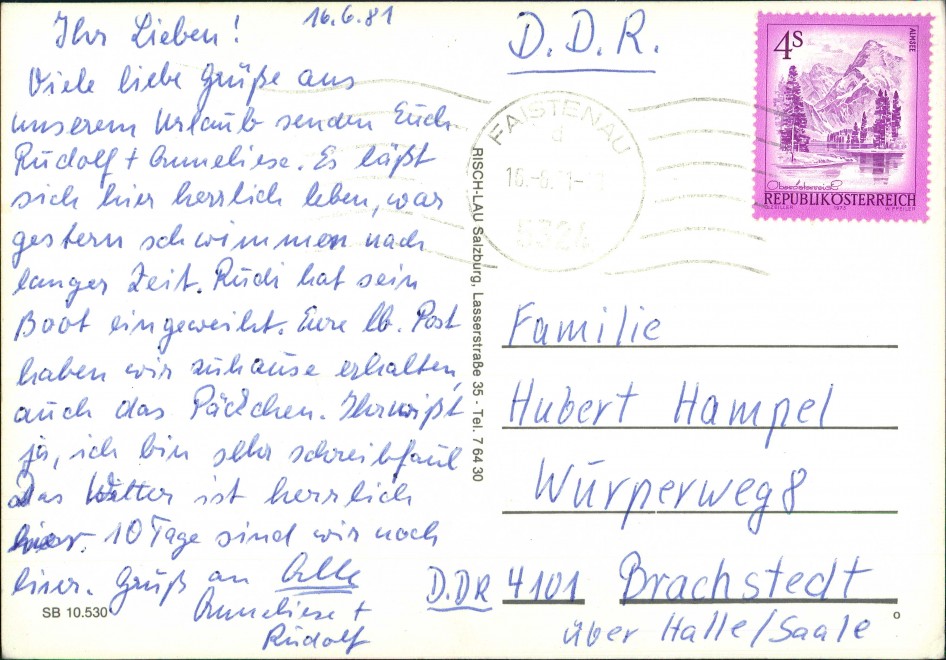 16.6.81
Ihr Lieben!
Viele liebe Grüße aus
unserem Urlaub senden Euch
Rudolf + Anneliese. Es läßt
sich hier herrlich leben, war
gestern schwimmen nach
langer Zeit. Rudi hat sein
Boot eingeweiht. Eure lb. Post
haben wir zuhause erhalten,
auch das Päckchen. Ihr wißt
ja, ich bin sehr schreibfaul
Das Wetter ist herrlich
hier. 10 Tage sind wir noch
hier. Gruß an Alle
Anneliese +
Rudolf
SB 10.530
RISCH-LAU Salzburg, Lasserstraße 35 - Tel. 7 64 30
D.D.R.
FAISTENAU
d
4S
ALMSEE
Oberösterreich
REPUBLIK ÖSTERREICH
1973
W. PFEILER
Familie
Hubert Hampel
Würperweg 8
D.DR 4101 Brachstedt
über Halle/Saale